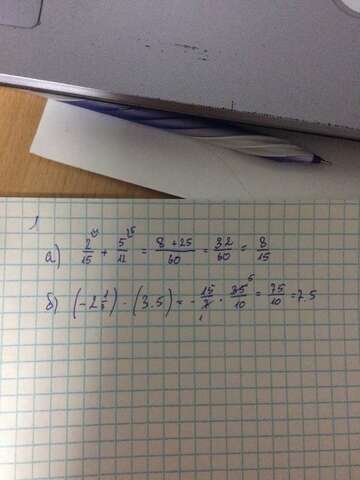 1
а) 2/15 + 5/12 = 8+25/60 = 32/60 = 8/15
б) (-2 1/7) · (3.5) = - 15/7 · 35/10 = 75/10 = 7.5